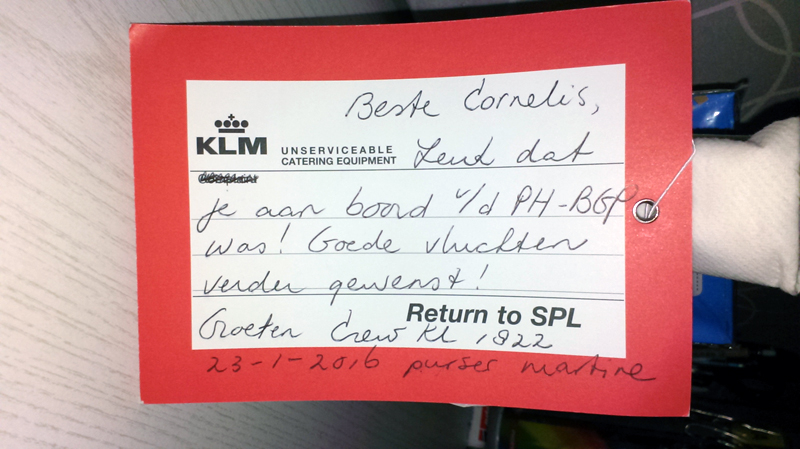 Beste Cornelis,
KLM
UNSERVICEABLE
CATERING EQUIPMENT
Leuk dat
je aan boord v/d PH-BGP
was! Goede vluchten
verder gewenst!
Return to SPL
Groeten Crew KL 1922
23-1-2016 purser martine